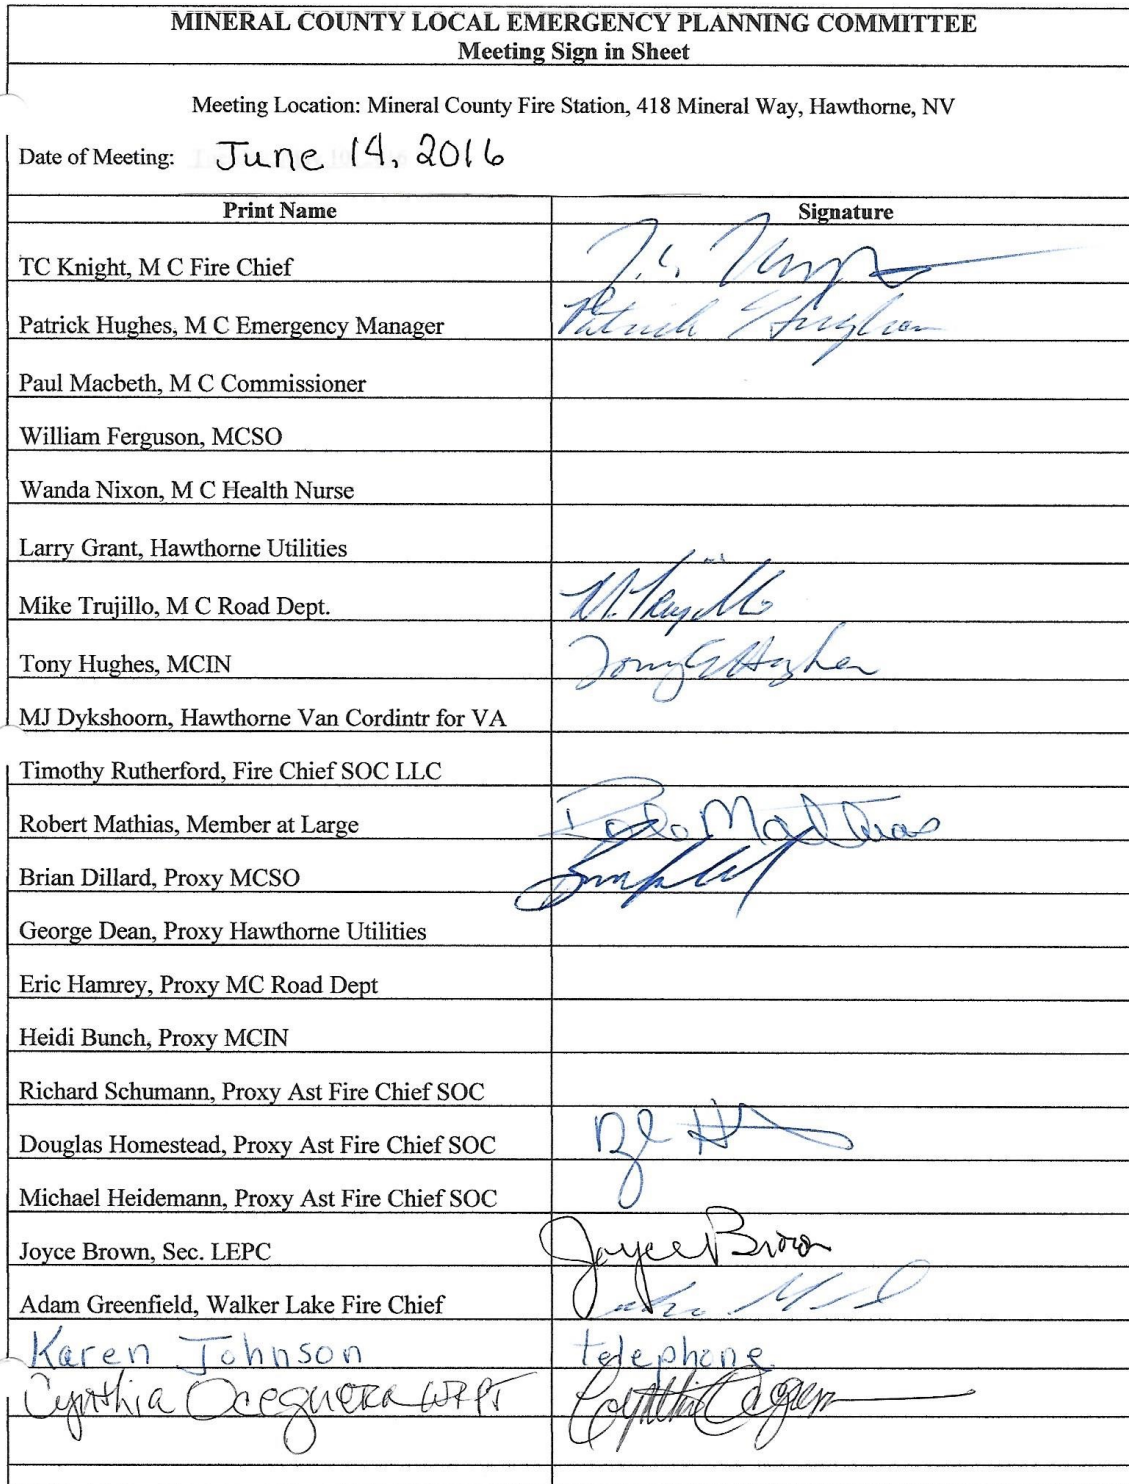 MINERAL COUNTY LOCAL EMERGENCY PLANNING COMMITTEE
Meeting Sign in Sheet
Meeting Location: Mineral County Fire Station, 418 Mineral Way, Hawthorne, NV
Date of Meeting: June 14, 2016
Print Name Signature
TC Knight, M C Fire Chief T.C.
Patrick Hughes, M C Emergency Manager Patrick Hughes
Paul Macbeth, M C Commissioner
William Ferguson, MCSO
Wanda Nixon, M C Health Nurse
Larry Grant, Hawthorne Utilities
Mike Trujillo, M C Road Dept. M. Trujillo
Tony Hughes, MCIN Tony G Hughes
MJ Dykshoorn, Hawthorne Van Cordintr for VA
Timothy Rutherford, Fire Chief SOC LLC
Robert Mathias, Member at Large Bob Mathias
Brian Dillard, Proxy MCSO
George Dean, Proxy Hawthorne Utilities
Eric Hamrey, Proxy MC Road Dept
Heidi Bunch, Proxy MCIN
Richard Schumann, Proxy Ast Fire Chief SOC
Douglas Homestead, Proxy Ast Fire Chief SOC
Michael Heidemann, Proxy Ast Fire Chief SOC
Joyce Brown, Sec. LEPC Joyce Brown
Adam Greenfield, Walker Lake Fire Chief
Karen Johnson telephone
Cynthia Oceguera WRPT Cynthia Oceguera